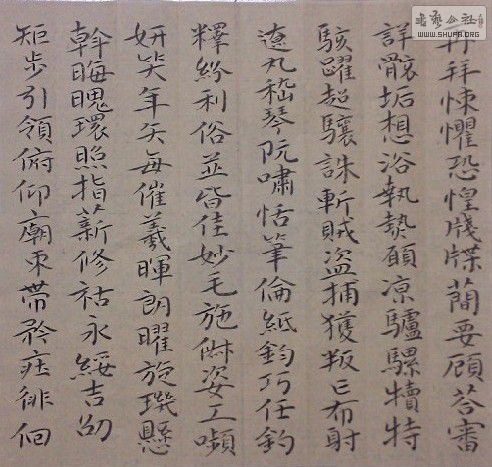 再拜悚懼恐惶牋牒蕳要顧荅審
詳骸垢想浴執熱願凉驢騾犢特
駭躍超驤誅斬賊盗捕獲叛亡布射
遼丸嵇琴阮嘯恬筆倫紙鈞巧任釣
釋紛利俗並皆佳妙毛施淑姿工嚬
妍笑年矢每催羲暉朗曜旋璣懸
斡晦魄環照指薪修祜永綏吉劭
矩步引領俯仰廟束帶矜莊徘徊
书艺公社
WWW.SHUFA.ORG